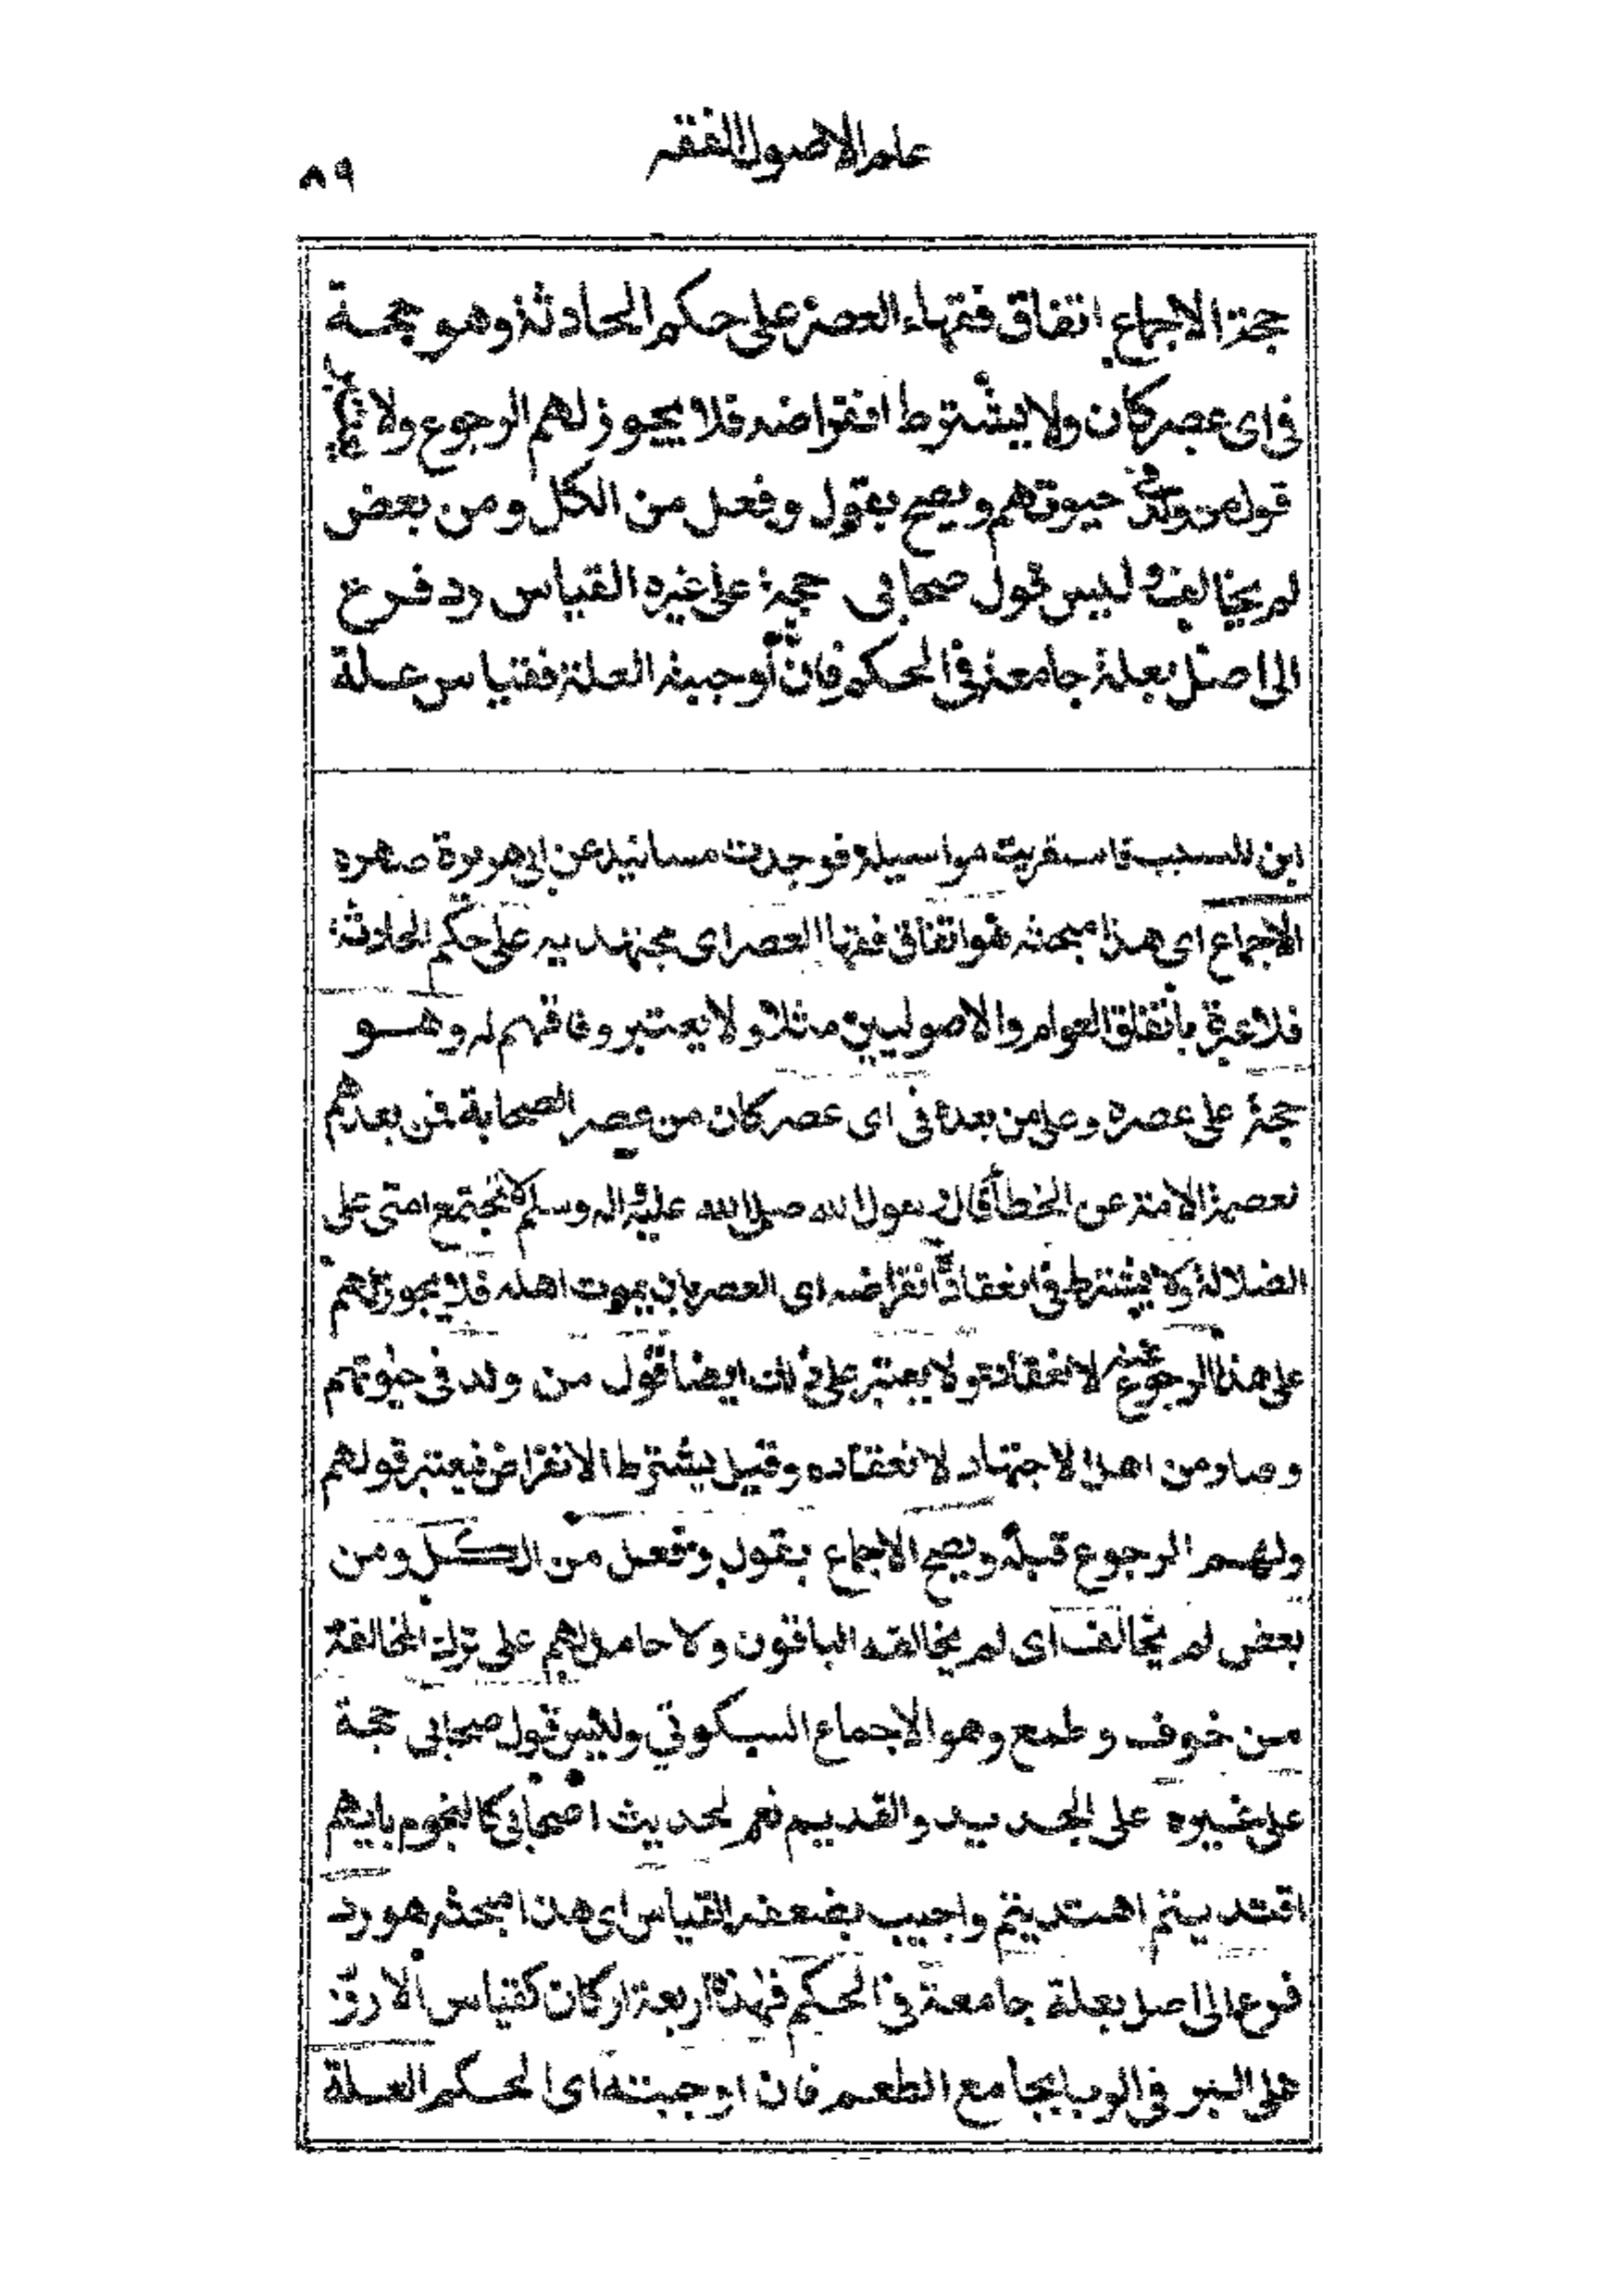 علم الاصول الفقه
٨٩
حجة الاجماع اتفاق فقهاء العصر على حكم الحادثة وهو حجة
فى اى عصر كان ولا يشترط انقراضه فلا يجوز لهم الرجوع ولا
قول من ولد فى حيوتهم ويصح بقول وفعل من الكل ومن بعض
لم يخالف وليس قول صحابى حجة على غيره القياس رد فرع
الى اصل بعلة جامعة فى الحكم فان اوجبته العلة فقياس علة
ابن المسيب فاستقريت مراسيله فوجدت مسانيد عن ابى هريرة صهره
الاجماع اى هذا مبحثه هو اتفاق فقها العصر اى مجتهديه على حكم الحادثة
فلا عبرة باتفاق العوام والاصوليين مثلا ولا يعتبر وفاقهم له وهو
حجة على عصره وعلى من بعده فى اى عصر كان من عصر الصحابة فمن بعدهم
لعصمة الامة عن الخطأ قال رسول الله صلى الله عليه واله وسلم لا تجتمع امتى على
الضلالة ولا يشترط فى انعقاده انقراضه اى العصر بان يموت اهله فلا يجوز لهم
على هذا الرجوع عنه لانعقاده ولا يعتبر على ذلك ايضا قول من ولد فى حيوتهم
وصار من اهل الاجتهاد لانعقاده وقيل يشترط الانقراض فيعتبر قولهم
ولهم الرجوع قبله ويصح الاجماع بقول وفعل من الكل ومن
بعض لم يخالف اى لم يخالفه الباقون ولا حامل لهم على ترك المخالفة
من خوف وطمع وهو الاجماع السكوتي وليس قول صحابى حجة
على غيره على الجديد والقديم نعم لحديث اصحابى كالنجوم بايهم
اقتديتم اهتديتم واجيب بضعفه القياس اى هذا مبحثه هو رد
فرع الى اصل بعلة جامعة فى الحكم فهذه اربعة اركان كقياس الارز
على البر فى الربا بجامع الطعم فان اوجبته اى الحكم العلة